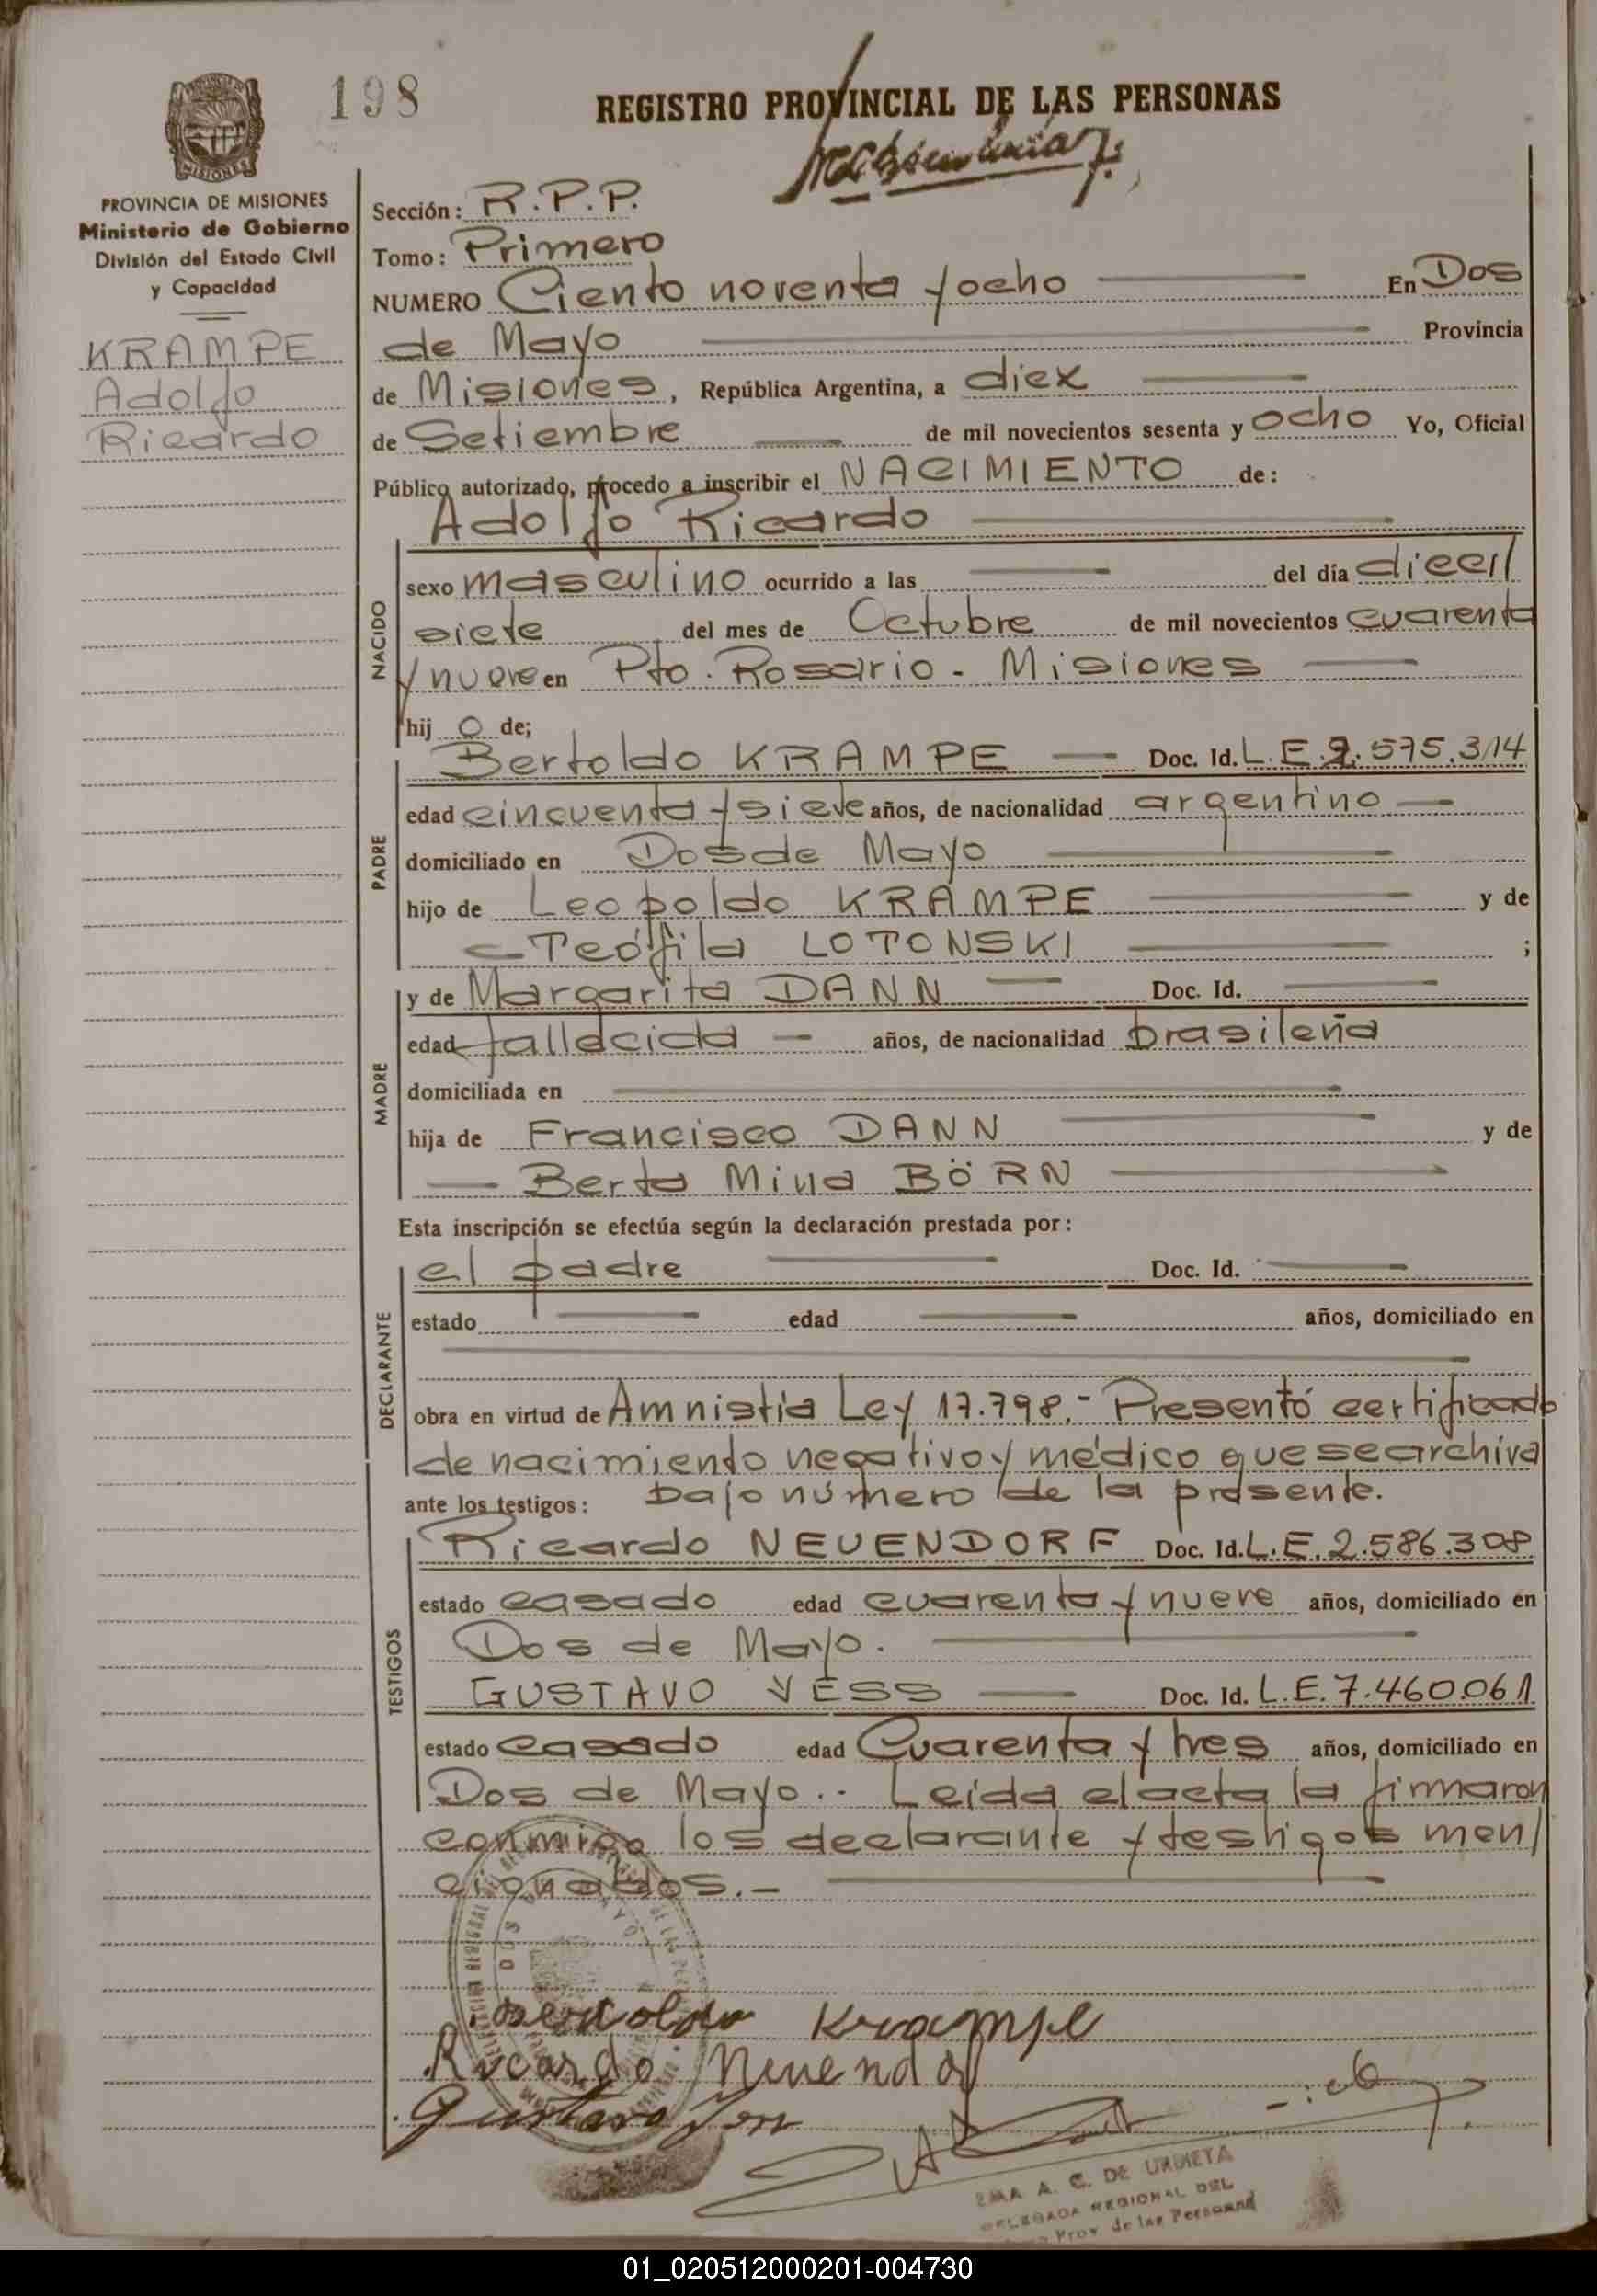 198
REGISTRO PROVINCIAL DE LAS PERSONAS
MISIONES
PROVINCIA DE MISIONES
Ministerio de Gobierno
División del Estado Civil
y Capacidad
KRAMPE
Adolfo
Ricardo
Sección: R.P.P.
Tomo: Primero
NUMERO Ciento noventa y ocho En Dos
de Mayo Provincia
de Misiones, República Argentina, a diez
de Setiembre de mil novecientos sesenta y ocho Yo, Oficial
Público autorizado, procedo a inscribir el NACIMIENTO de:
Adolfo Ricardo
NACIDO
sexo masculino ocurrido a las del día dieci/
siete del mes de Octubre de mil novecientos cuarenta
y nueve en Pto. Rosario - Misiones
hij o de;
PADRE
Bertoldo KRAMPE Doc. Id. L.E. 2.575.314
edad cincuenta y siete años, de nacionalidad argentino
domiciliado en Dos de Mayo
hijo de Leopoldo KRAMPE y de
Teófila LOTONSKI ;
MADRE
y de Margarita DANN Doc. Id.
edad fallecida años, de nacionalidad brasileña
domiciliada en
hija de Francisco DANN y de
Berta Mina BÖRN
Esta inscripción se efectúa según la declaración prestada por:
DECLARANTE
el padre Doc. Id.
estado edad años, domiciliado en
obra en virtud de Amnistia Ley 17.798.- Presentó certificado
de nacimiento negativo y médico que se archiva
ante los testigos: bajo número de la presente.
TESTIGOS
Ricardo NEUENDORF Doc. Id. L.E. 2.586.308
estado casado edad cuarenta y nueve años, domiciliado en
Dos de Mayo.
GUSTAVO YESS Doc. Id. L.E. 7.460.061
estado casado edad Cuarenta y tres años, domiciliado en
Dos de Mayo.. Leida el acta la firmaron
conmigo los declarante y testigos men/
cionados.-
Bertoldo Krampe
Ricardo Neuendorf
Gustavo Yess
EMA A. C. DE URDIETA
DELEGADA REGIONAL DEL
Prov. de las Personas
01_020512000201-004730